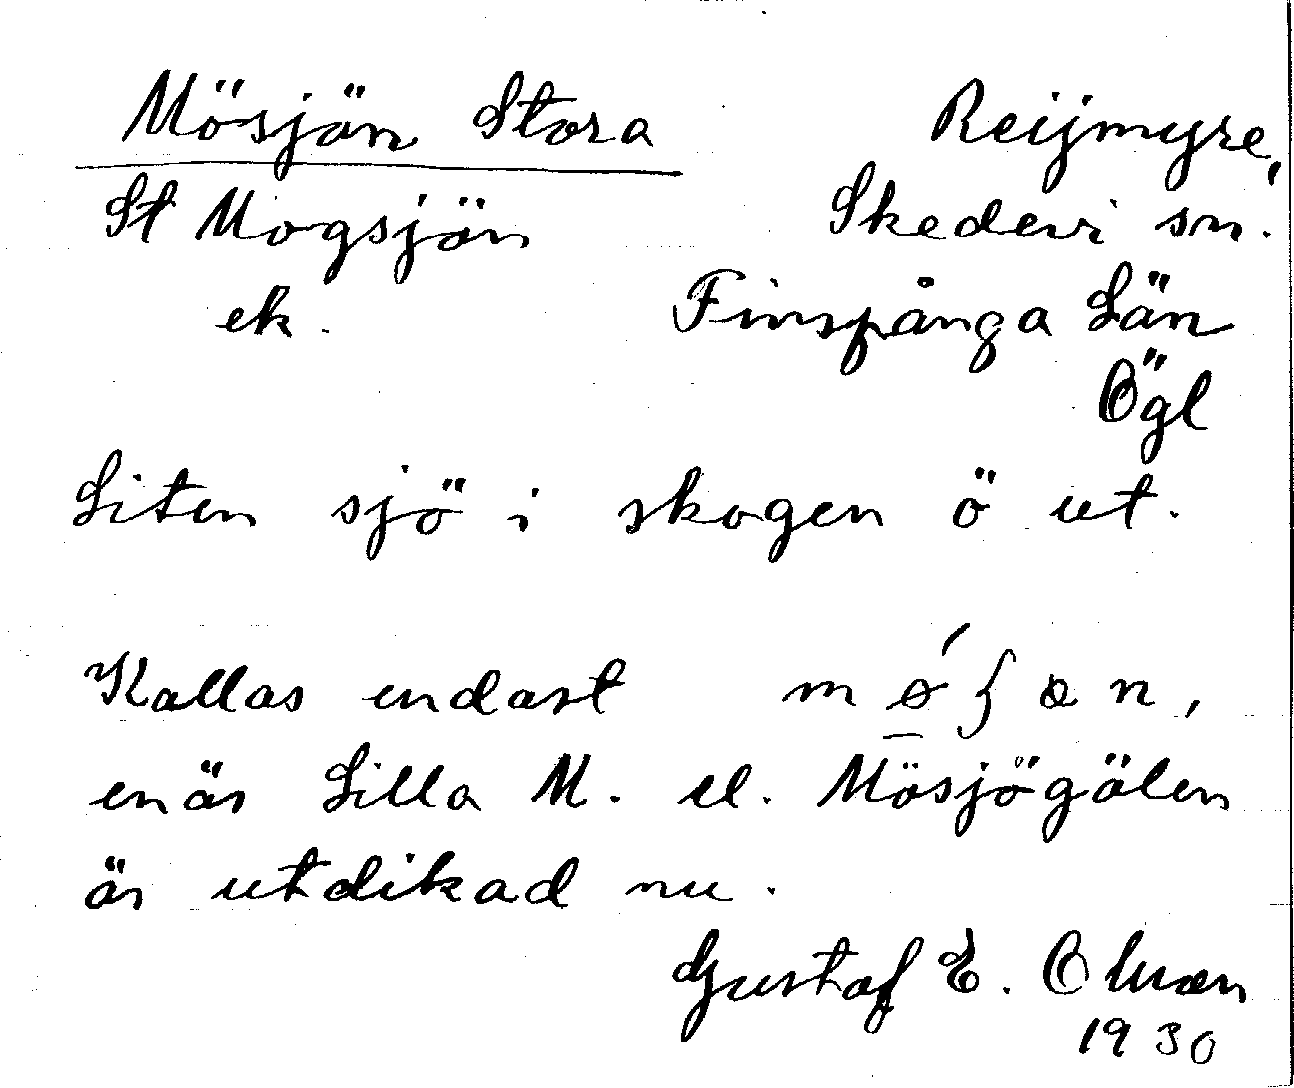 Mösjön Stora
Reijmyre,
St Mogsjön
Skedevi sn.
ek.
Finspånga Län
Ögl
Liten sjö i skogen ö ut.
Kallas endast
enär Lilla M. el. Mösjögölen
är utdikad nu.
Gustaf E.
1930